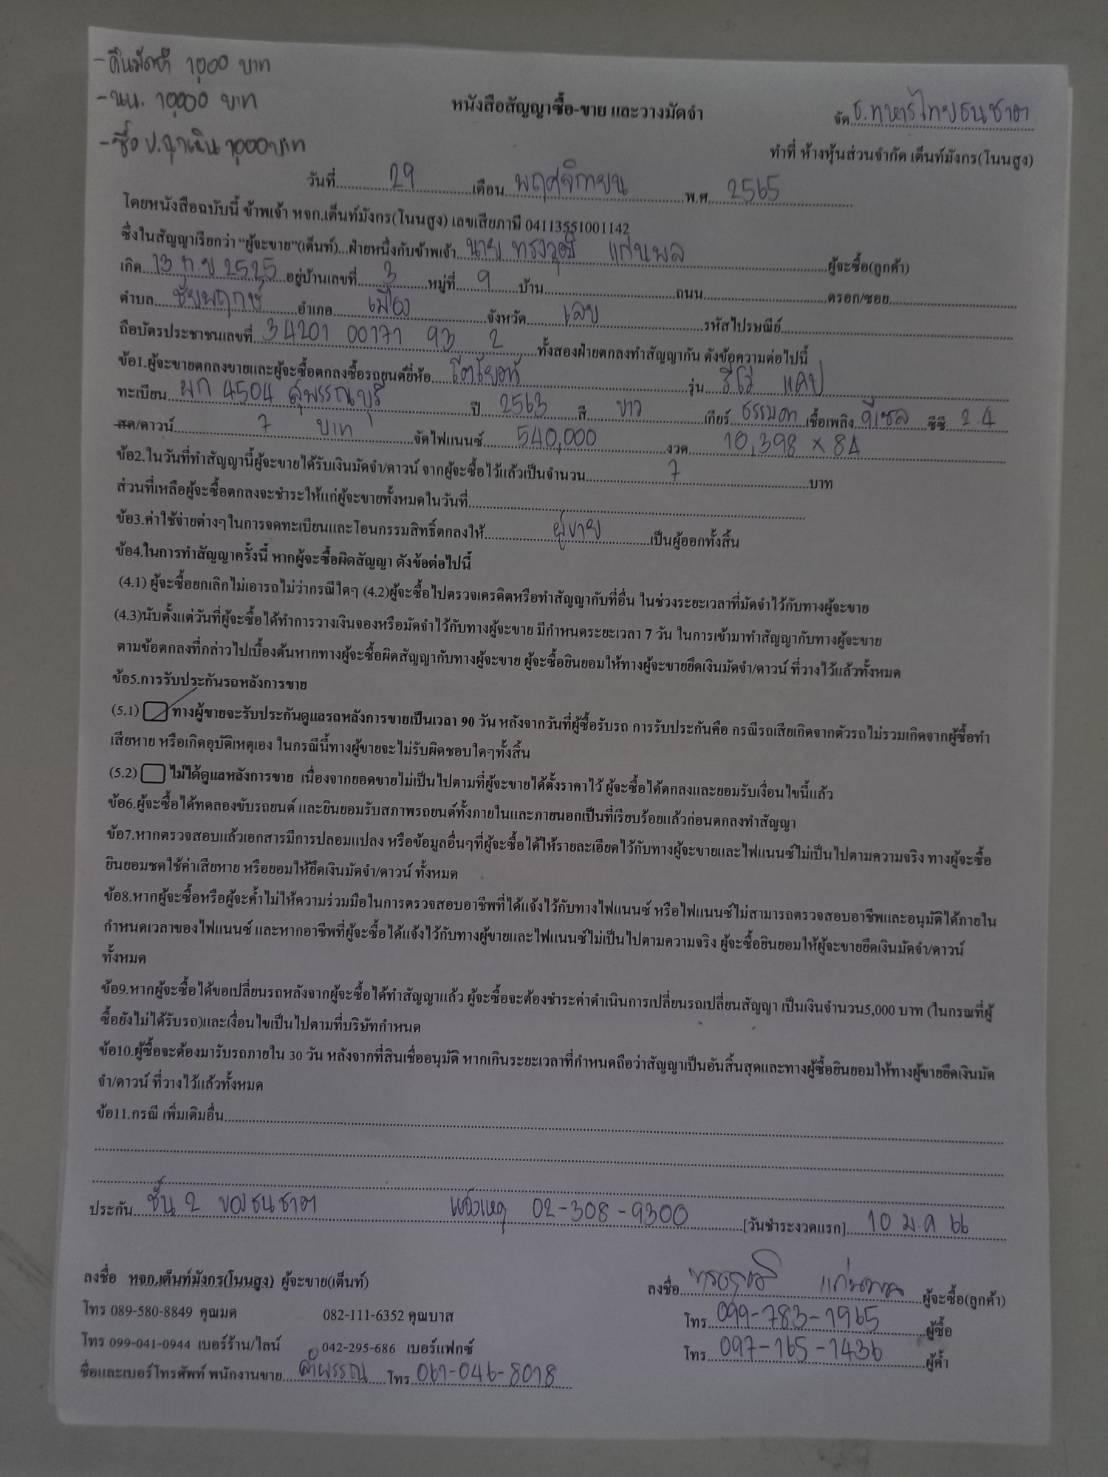 -คืนมัดจำ 1000 บาท
-นน. 10000 บาท
หนังสือสัญญาซื้อ-ขาย และวางมัดจำ
จัด ธ.ทหารไทยธนชาต
-ซื้อ ป.ฉุกเฉิน 1000 บาท
ทำที่ ห้างหุ้นส่วนจำกัด เต็นท์มังกร(โนนสูง)
วันที่ 29 เดือน พฤศจิกายน พ.ศ. 2565
โดยหนังสือฉบับนี้ ข้าพเจ้า หจก.เต็นท์มังกร(โนนสูง) เลขเสียภาษี 04113551001142
ซึ่งในสัญญาเรียกว่า “ผู้จะขาย”(เต็นท์)...ฝ่ายหนึ่งกับข้าพเจ้า นาย ทรงวุฒิ แก่นพล ผู้จะซื้อ(ลูกค้า)
เกิด 13 ก.ย 2525 อยู่บ้านเลขที่ 3 หมู่ที่ 9 บ้าน ถนน ตรอก/ซอย
ตำบล ชัยพฤกษ์ อำเภอ เมือง จังหวัด เลย รหัสไปรษณีย์
ถือบัตรประชาชนเลขที่ 3 4201 00171 93 2 ทั้งสองฝ่ายตกลงทำสัญญากัน ดังข้อความต่อไปนี้
ข้อ1.ผู้จะขายตกลงขายและผู้จะซื้อตกลงซื้อรถยนต์ยี่ห้อ โตโยต้า รุ่น รีโว่ แคป
ทะเบียน ผก 4504 สุพรรณบุรี ปี 2563 สี ขาว เกียร์ ธรรมดา เชื้อเพลิง ดีเซล ซีซี 2.4
สด/ดาวน์ 7 บาท จัดไฟแนนซ์ 540,000 งวด 10,398 × 84
ข้อ2.ในวันที่ทำสัญญานี้ผู้จะขายได้รับเงินมัดจำ/ดาวน์ จากผู้จะซื้อไว้แล้วเป็นจำนวน 7 บาท
ส่วนที่เหลือผู้จะซื้อตกลงจะชำระให้แก่ผู้จะขายทั้งหมดในวันที่
ข้อ3.ค่าใช้จ่ายต่างๆในการจดทะเบียนและโอนกรรมสิทธิ์ตกลงให้ ผู้ขาย เป็นผู้ออกทั้งสิ้น
ข้อ4.ในการทำสัญญาครั้งนี้ หากผู้จะซื้อผิดสัญญา ดังข้อต่อไปนี้
(4.1) ผู้จะซื้อยกเลิกไม่เอารถไม่ว่ากรณีใดๆ (4.2)ผู้จะซื้อไปตรวจเครดิตหรือทำสัญญากับที่อื่น ในช่วงระยะเวลาที่มัดจำไว้กับทางผู้จะขาย
(4.3)นับตั้งแต่วันที่ผู้จะซื้อได้ทำการวางเงินจองหรือมัดจำไว้กับทางผู้จะขาย มีกำหนดระยะเวลา 7 วัน ในการเข้ามาทำสัญญากับทางผู้จะขาย
ตามข้อตกลงที่กล่าวไปเบื้องต้นหากทางผู้จะซื้อผิดสัญญากับทางผู้จะขาย ผู้จะซื้อยินยอมให้ทางผู้จะขายยึดเงินมัดจำ/ดาวน์ ที่วางไว้แล้วทั้งหมด
ข้อ5.การรับประกันรถหลังการขาย
(5.1) ทางผู้ขายจะรับประกันดูแลรถหลังการขายเป็นเวลา 90 วัน หลังจากวันที่ผู้ซื้อรับรถ การรับประกันคือ กรณีรถเสียเกิดจากตัวรถไม่รวมเกิดจากผู้ซื้อทำ
เสียหาย หรือเกิดอุบัติเหตุเอง ในกรณีนี้ทางผู้ขายจะไม่รับผิดชอบใดๆทั้งสิ้น
(5.2) ไม่ได้ดูแลหลังการขาย เนื่องจากยอดขายไม่เป็นไปตามที่ผู้จะขายได้ตั้งราคาไว้ ผู้จะซื้อได้ตกลงและยอมรับเงื่อนไขนี้แล้ว
ข้อ6.ผู้จะซื้อได้ทดลองขับรถยนต์ และยินยอมรับสภาพรถยนต์ทั้งภายในและภายนอกเป็นที่เรียบร้อยแล้วก่อนตกลงทำสัญญา
ข้อ7.หากตรวจสอบแล้วเอกสารมีการปลอมแปลง หรือข้อมูลอื่นๆที่ผู้จะซื้อได้ให้รายละเอียดไว้กับทางผู้จะขายและไฟแนนซ์ไม่เป็นไปตามความจริง ทางผู้จะซื้อ
ยินยอมชดใช้ค่าเสียหาย หรือยอมให้ยึดเงินมัดจำ/ดาวน์ ทั้งหมด
ข้อ8.หากผู้จะซื้อหรือผู้จะค้ำไม่ให้ความร่วมมือในการตรวจสอบอาชีพที่ได้แจ้งไว้กับทางไฟแนนซ์ หรือไฟแนนซ์ไม่สามารถตรวจสอบอาชีพและอนุมัติได้ภายใน
กำหนดเวลาของไฟแนนซ์ และหากอาชีพที่ผู้จะซื้อได้แจ้งไว้กับทางผู้ขายและไฟแนนซ์ไม่เป็นไปตามความจริง ผู้จะซื้อยินยอมให้ผู้จะขายยึดเงินมัดจำ/ดาวน์
ทั้งหมด
ข้อ9.หากผู้จะซื้อได้ขอเปลี่ยนรถหลังจากผู้จะซื้อได้ทำสัญญาแล้ว ผู้จะซื้อจะต้องชำระค่าดำเนินการเปลี่ยนรถเปลี่ยนสัญญา เป็นเงินจำนวน5,000 บาท (ในกรณีที่ผู้
ซื้อยังไม่ได้รับรถ)และเงื่อนไขเป็นไปตามที่บริษัทกำหนด
ข้อ10.ผู้ซื้อจะต้องมารับรถภายใน 30 วัน หลังจากที่สินเชื่ออนุมัติ หากเกินระยะเวลาที่กำหนดถือว่าสัญญาเป็นอันสิ้นสุดและทางผู้ซื้อยินยอมให้ทางผู้ขายยึดเงินมัด
จำ/ดาวน์ ที่วางไว้แล้วทั้งหมด
ข้อ11.กรณี เพิ่มเติมอื่น
ประกัน ชั้น 2 ของธนชาต แจ้งเหตุ 02-308-9300 [วันชำระงวดแรก] 10 ม.ค 66
ลงชื่อ หจก.เต็นท์มังกร(โนนสูง) ผู้จะขาย(เต็นท์) ลงชื่อ ทรงวุฒิ แก่นพล ผู้จะซื้อ(ลูกค้า)
โทร 089-580-8849 คุณมด 082-111-6352 คุณบาส โทร 099-783-1965 ผู้ซื้อ
โทร 099-041-0944 เบอร์ร้าน/ไลน์ 042-295-686 เบอร์แฟกซ์ โทร 097-165-1436 ผู้ค้ำ
ชื่อและเบอร์โทรศัพท์ พนักงานขาย ลำพรรณ โทร 061-046-8018